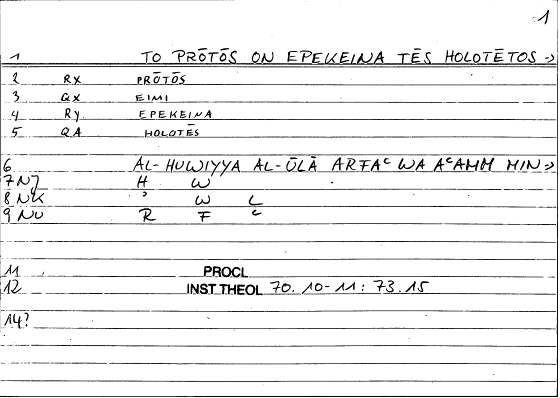 1
1 TO PRŌTŌS ON EPEKEINA TĒS HOLOTĒTOS ->
2 RX PRŌTŌS
3 QX EIMI
4 RY EPEKEINA
5 QA HOLOTĒS
6 AL-HUWIYYA AL-ŪLĀ ARFAᶜ WA AᶜAMM MIN ->
7 NJ H W
8 NK ʾ W L
9 NU R F ᶜ
11 PROCL
12 INST THEOL 70.10-11: 73.15
14?